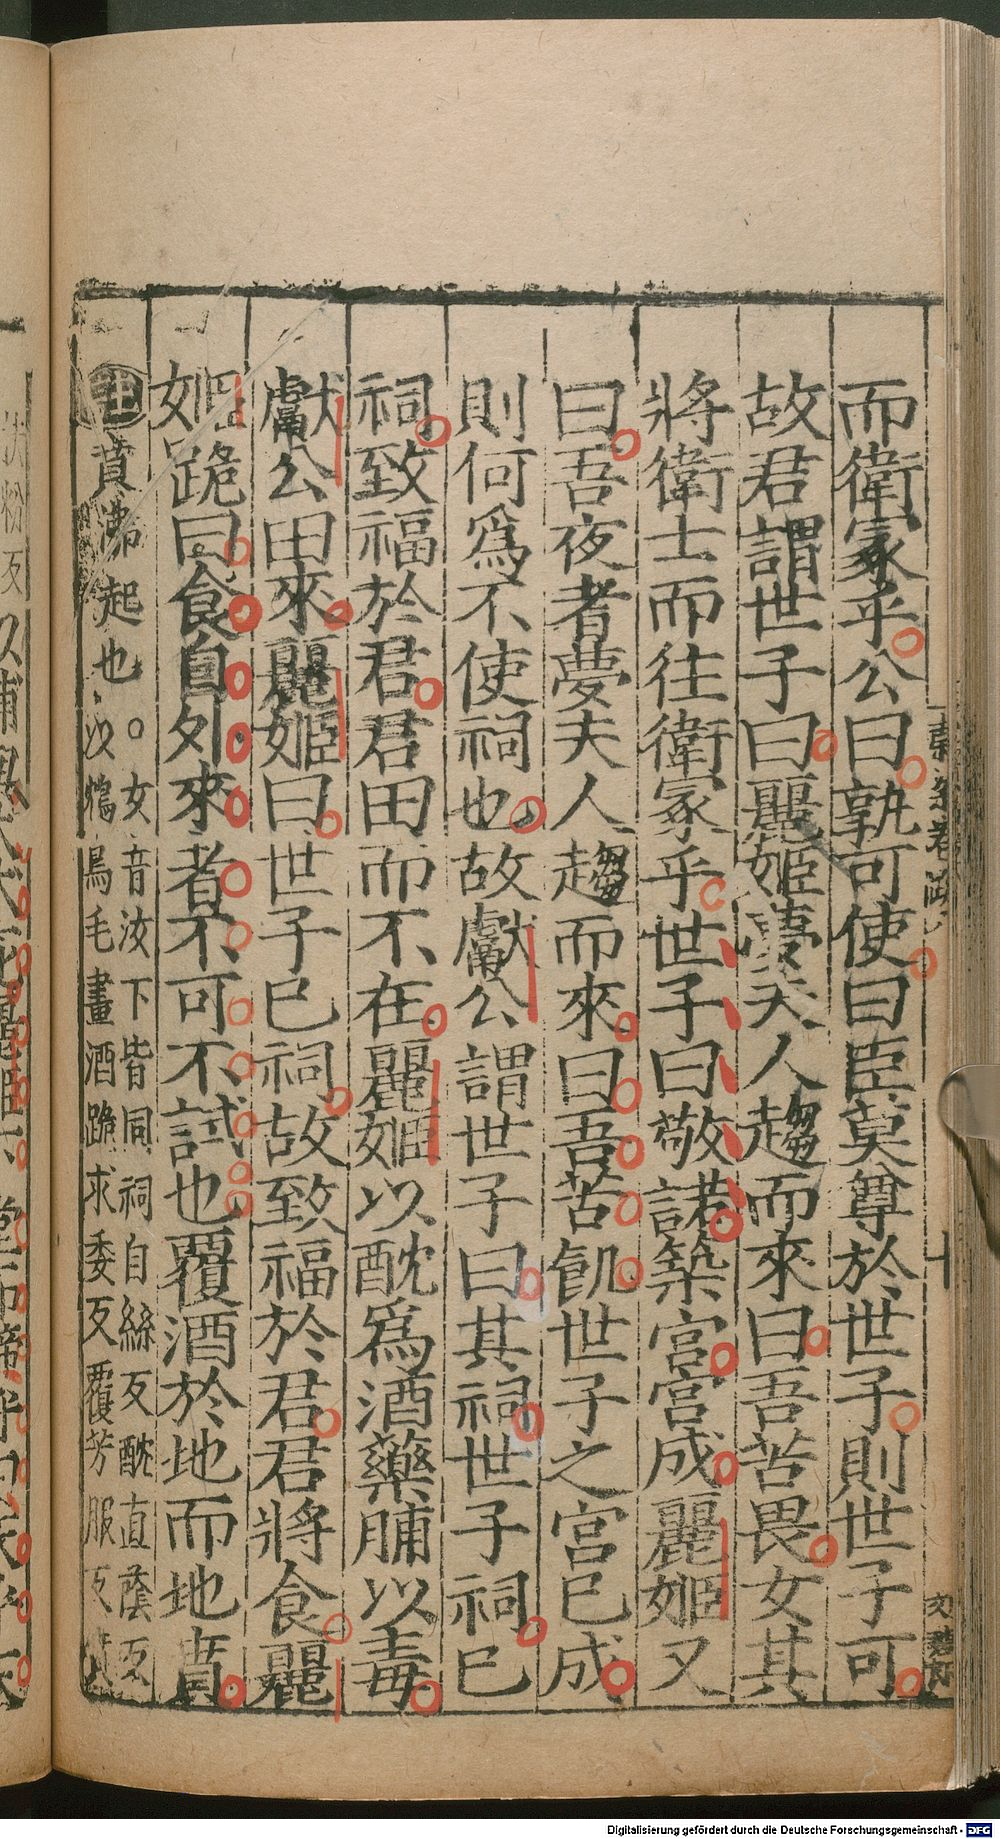 而衛冢乎公曰孰可使曰臣莫尊於世子則世子可
故君謂世子曰麗姬夢夫人趨而來曰吾苦畏女其
將衛士而往衛冢乎世子曰敬諾築宮宮成麗姬又
曰吾夜者夢夫人趨而來曰吾苦飢世子之宮已成
則何爲不使祠也故獻公謂世子曰其祠世子祠已
祠致福於君君田而不在麗姬以酖爲酒藥脯以毒
獻公田來麗姬曰世子已祠故致福於君君將食麗
姬跪曰食自外來者不可不試也覆酒於地而地賁
注賁沸起也○女音汝下皆同祠自絲反酖直蔭反
以鴆鳥毛畫酒跪求委反覆芳服反
扶粉反以脯與犬犬死麗姬下堂而啼呼曰天乎天
Digitalisierung gefördert durch die Deutsche Forschungsgemeinschaft - DFG